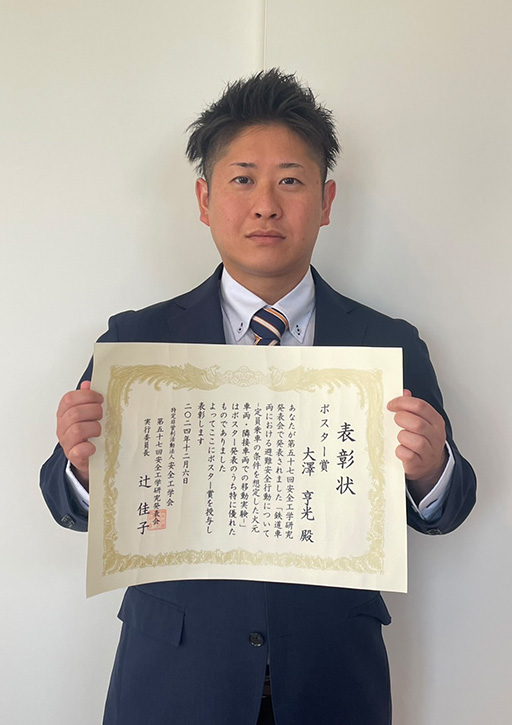 表彰状
ポスター賞
大澤 亨光 殿
あなたが第五十七回安全工学研究
発表会で発表されました「鉄道車
両における避難安全行動について
-定員乗車の条件を想定した火元
車両・隣接車両での移動実験-」
はポスター発表のうち特に優れた
ものでありました
よってここにポスター賞を授与し
表彰します
二〇二四年十二月六日
特定非営利活動法人 安全工学会
第五十七回安全工学研究発表会
実行委員長 辻 佳子